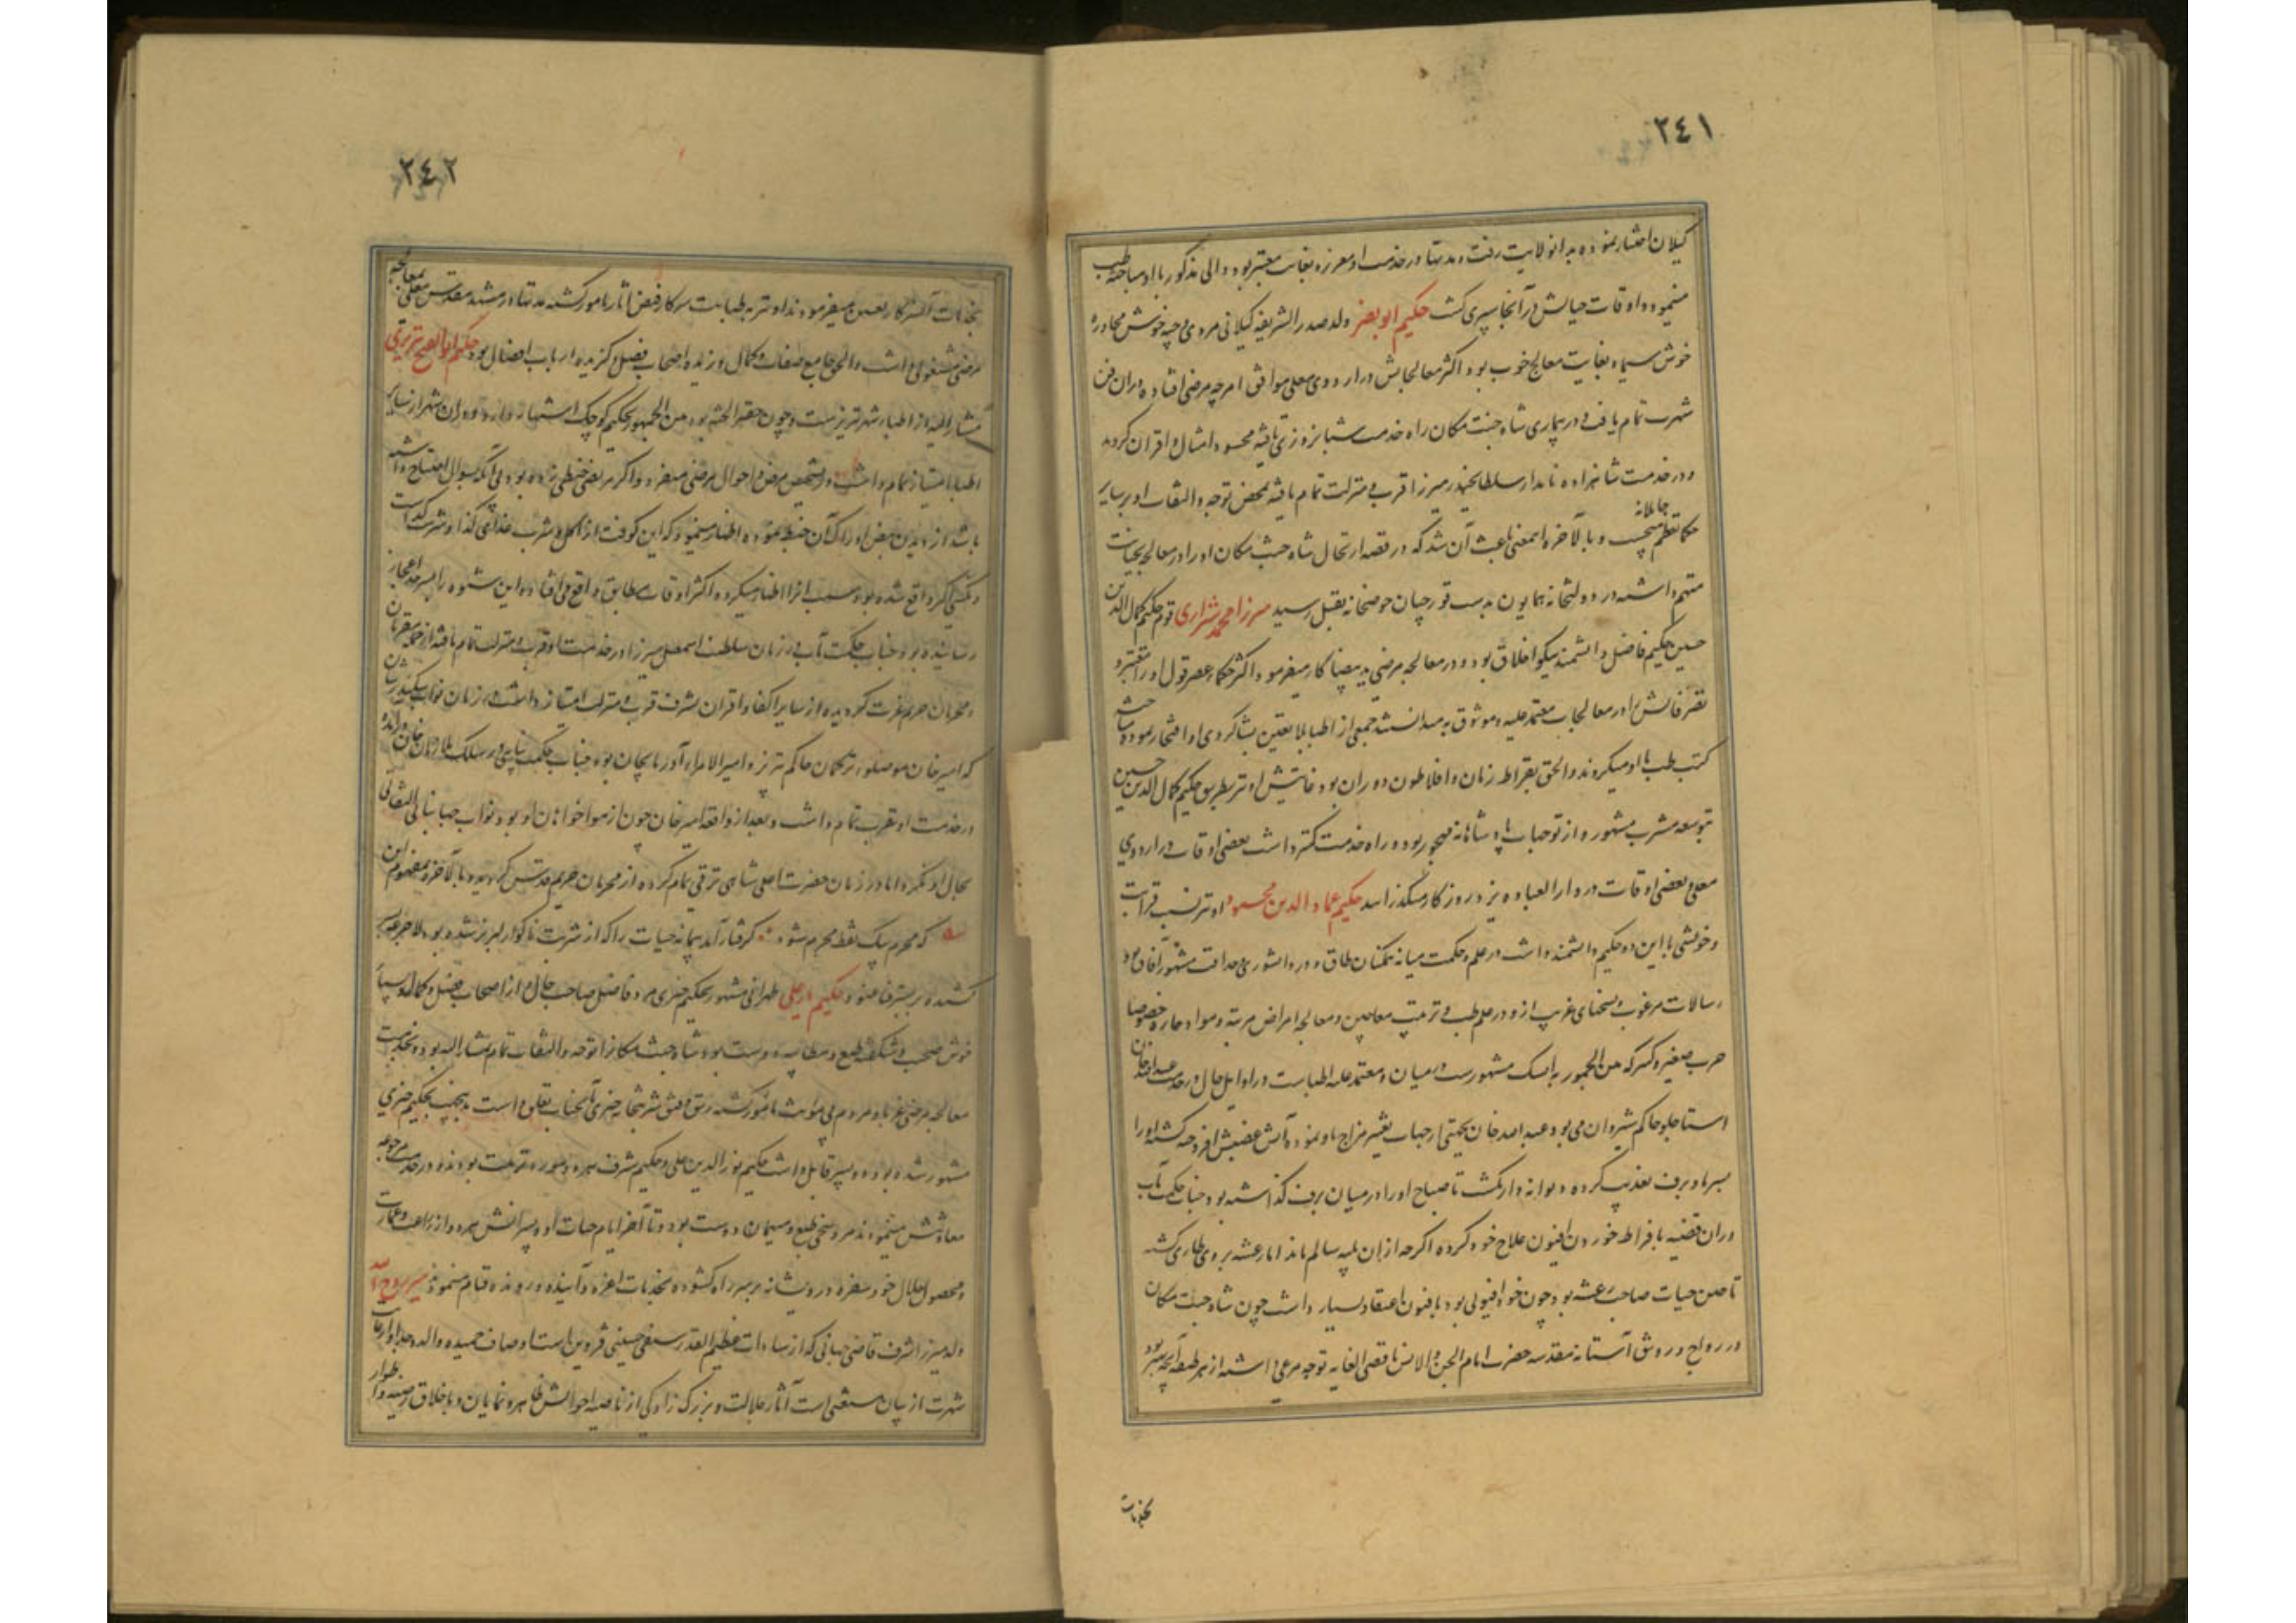 ٢٤١
گیلان اختیار نموده بدانولایت رفت و مدتها در خدمت او معزز و بغایت معتبر بود و والی مذکور با او مباحثه طب
مینمود و اوقات حیاتش در آنجا سپری گشت حکیم ابو نصر ولد صدر الشریعه گیلانی مردی وجیه خوش محاوره
خوش سیما و بغایت معالج خوب بود اکثر معالجاتش در اردوی معلی موافق امزجه مرضی افتاده در آن فن
شهرت تمام یافت و در بیماری شاه جنت مکان راه خدمت شبانروزی یافته محسود امثال و اقران گردید
و در خدمت شاهزاده نامدار سلطان حیدر میرزا قرب و منزلت تمام یافته بمحض توجه و التفات او بر سایر
حکما تعظم جاهلانه میجست و بالآخره اینمعنی باعث آن شد که در قضیه ارتحال شاه جنت مکان او را در معالجه بخیانت
متهم داشته در دولتخانه همایون بدست قورچیان حوضخانه بقتل رسید میرزا محمد شیرازی قوم حکیم کمال الدین
حسین حکیم فاضل دانشمند نیکو اخلاق بود و در معالجه مرضی ید بیضا کار میفرمود اکثر حکماء عصر قول او را معتبر و
تصرفاتش را در معالجات معتمد علیه و موثوق به میدانستند جمعی از اطبا بالیقین بشاگردی او افتخار نموده مباحثه
کتب طب با او میکردند و الحق بقراط زمان و افلاطون دوران بود غایتش او نیز بطریق حکیم کمال الدین حسین
بتوسعه مشرب مشهور و از توجهات پادشاهانه مهجور بود و راه خدمت کمتر داشت بعضی اوقات در اردوی
معلی و بعضی اوقات در دار العباده یزد روزگار میگذرانید حکیم عماد الدین محمود او نیز نسبت قرابت
و خویشی با این دو حکیم دانشمند داشت در علم و حکمت میانه همگنان طاق و در دانشوری و حذاقت مشهور آفاق بود
رسالات مرغوب و نسخهای غریب ازو در علم طب و ترتیب معاجین و معالجه امراض مزمنه و مواد حاره خصوصا
حرب صغیر و کبیر که من الجمهور به مشهورست در میان و معتمد علیه اطباست در اوایل حال در خدمت عبدالله خان
استاجلو حاکم شیروان می بود عبدالله خان بجهتی از جهات تغییر مزاج باو نموده آتش غضبش افروخته گشته او را
بسرما و برف تعذیب کرده دیوانه وار یکشب تا صباح او را در میان برف گذاشته بود جناب حکمت مآب
در آن قضیه بافراط خوردن افیون علاج خود کرده اگرچه از آن بلیه سالم ماند اما رعشه بر وی طاری گشته
تا حین حیات صاحب رعشه بود چون خود افیونی بود بافیون اعتقاد بسیار داشت چون شاه جنت مکان
در رواج و رونق آستانه مقدسه حضرت امام الجن والانس باقصی الغایه توجه مرعی داشته از هر طبقه آنچه بهتر بود
بخدمات
٢٤٢
بخدمات آنسرکار تعیین میفرمودند او نیز به طبابت سرکار فیض آثار مامور گشته مدتها در مشهد مقدس معلی بمعالجه
مرضی مشغولی داشت والحق جامع صفات و کمال و زبده اصحاب فضل و گزیده ارباب افضال بود حکیم ابوالفتح تبریزی
مشار الیه از اطباء شهر تبریزست و چون حقیر الجثه بود من الجمهور بحکیم کوچک اشتهار دارد و در آن شهر از سایر
اطبا امتیاز تمام داشت و تشخیص مرض و احوال مرضی میفرمود و اگر مریضی خبطی زده بود بی آنکه بسوال احتیاج داشته
باشد از دیدن نبض ادراک آن خبط نموده اظهار مینمود که این کوفت از اکل و شرب غذای کذا و شربت کذاست
و شکی اگر واقع شده بود سبب آنرا اظهار میکرد و اکثر اوقات مطابق واقع می افتاد و این شیوه را بسرحد اعجاز
رسانیده بود جناب حکمت مآب در زمان سلطنت اسمعیل میرزا در خدمت او قرب و منزلت تمام یافته از جمله مقربان
و محرمان حریم عزت گردیده از سایر اکفا و اقران بشرف قرب و منزلت امتیاز داشت و در زمان نواب سکندر شان
که امیرخان موصلوء ترکمان حاکم تبریز و امیر الامراء آذربایجان بود جناب حکمت پناهی در سلک ملازمان خان در آمده
در خدمت او تقرب تمام داشت و بعد از واقعه امیرخان چون از هواخواهان او بود نواب جهانبانی التفاتی
بحال او نکرد اما در زمان حضرت اعلی شاهی ترقی تمام کرده از محرمان حریم قدس گردید و بالآخره بمفهوم این
که محرم بیک نقطه مجرم شود گرفتار آمد پیمانه حیات را که از شربت ناگوار لبریز شده بود لاجرعه
کشیده بر بستر فنا غنود حکیم یارعلی طهرانی مشهور بحکیم خیری مرد فاضل صاحب حال و از اصحاب فضل و کمال و بسیار
خوش صحبت و شکفته طبع و مطایبه دوست بود شاه جنت مکانرا توجه و التفات تمام بمشار الیه بود و بخدمت
معالجه مرضی غربا و مردم بی مؤنت مامور گشته رتق و فتق شربتخانه خیری بآنجناب تعلق داشت بدین جهت بحکیم خیری
مشهور شده بود دو پسر قابل داشت حکیم نور الدین علی و حکیم شرف هر دو مورد تربیت بودند و در خدمت مرجوعه
معاونتش مینمودند مرد سخی طبع و میهمان دوست بود و تا آخر ایام حیات او و پسرانش هر دو از زراعت و عمارت
و محصول حلال خود سفره درویشانه بر سر راه گشوده بخدمات اعزه و آینده و رونده قیام مینمودند میر روح الله
ولد میرزا شرف قاضی جهانی که از سادات عظیم القدر سیفی حسینی قزوین است اوصاف حمیده والد و جد او از غایت
شهرت از بیان مستغنی است آثار جلالت و بزرگ زادگی از ناصیه احوالش ظاهر و نمایان و باخلاق رضیه و اطوار